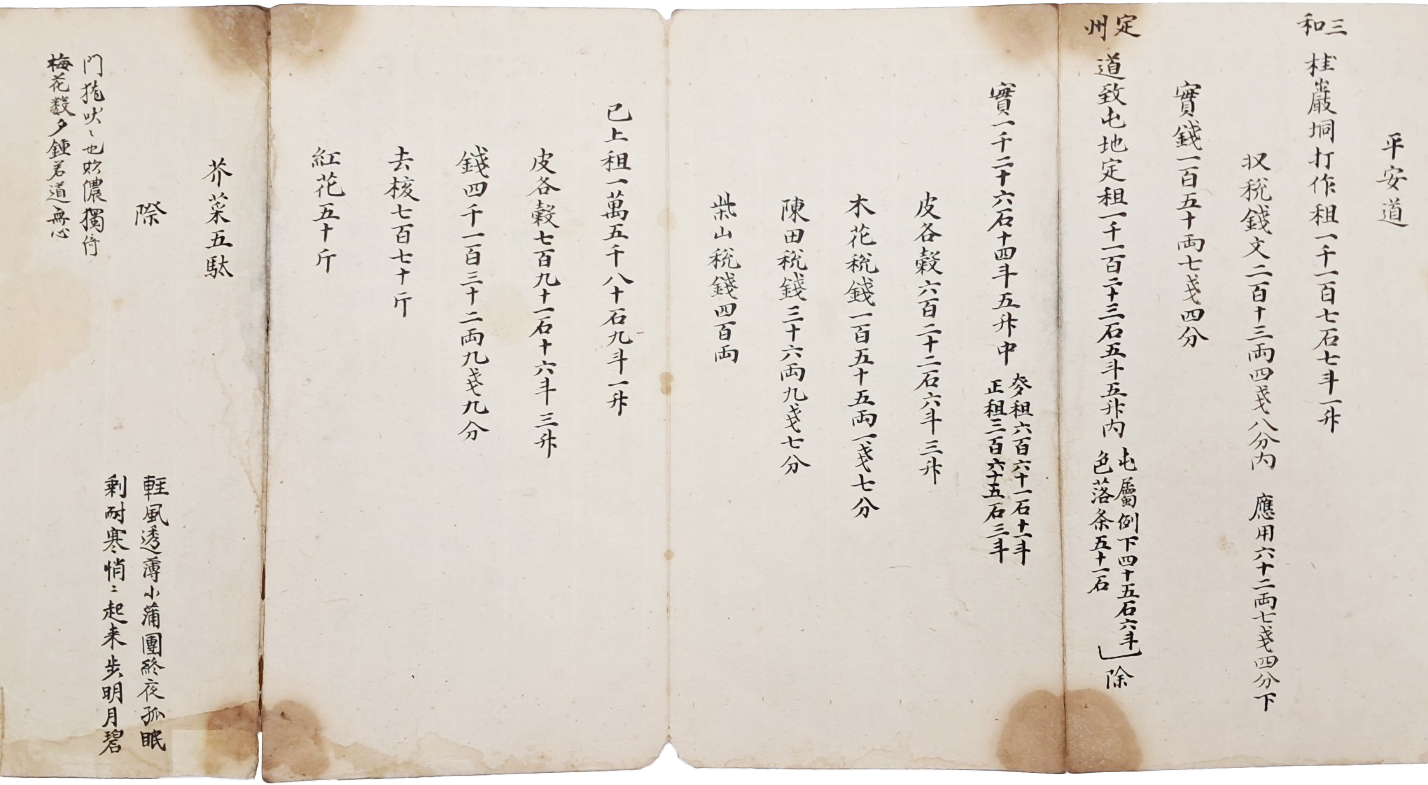 平安道
三和
桂巖垌打作租一千一百七石七斗一升
収稅錢文二百十三両四戔八分內 應用六十二両七戔四分下
實錢一百五十両七戔四分
定州
道致屯地定租一千一百二十三石五斗五升內
屯屬例下四十五石六斗
色落条五十一石
除
實一千二十六石十四斗五升中
麥租六百六十一石十一斗
正租三百六十五石三斗
皮各穀六百二十二石六斗三升
木花稅錢一百五十五両一戔七分
陳田稅錢三十六両九戔七分
柴山稅錢四百両
已上租一萬五千八十石九斗一升
皮各穀七百九十一石十六斗三升
錢四千一百三十二両九戔九分
去核七百七十斤
紅花五十斤
芥菜五駄
際
輕風透薄小蒲團終夜孤眠
剩耐寒悄〻起来步明月碧
門狵吠〻也
儂獨倚
梅花數夕鍾若道無心